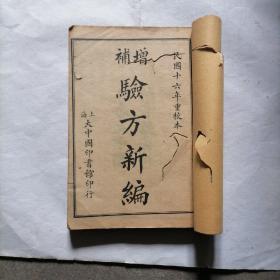 民國十六年重校本
增補
驗方新編
上海
大中國印書館印行